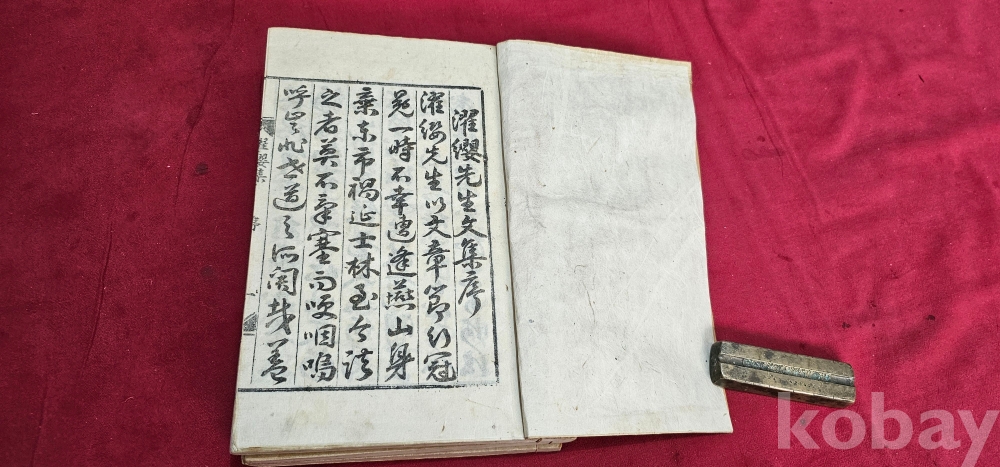 濯纓先生文集序
濯纓先生以文章節行冠
冕一時不幸遭逢燕山身
棄東市禍延士林至今談
之者莫不氣塞而哽咽嗚
呼豈非世道之所關哉蓋
濯纓集 序 一
kobay